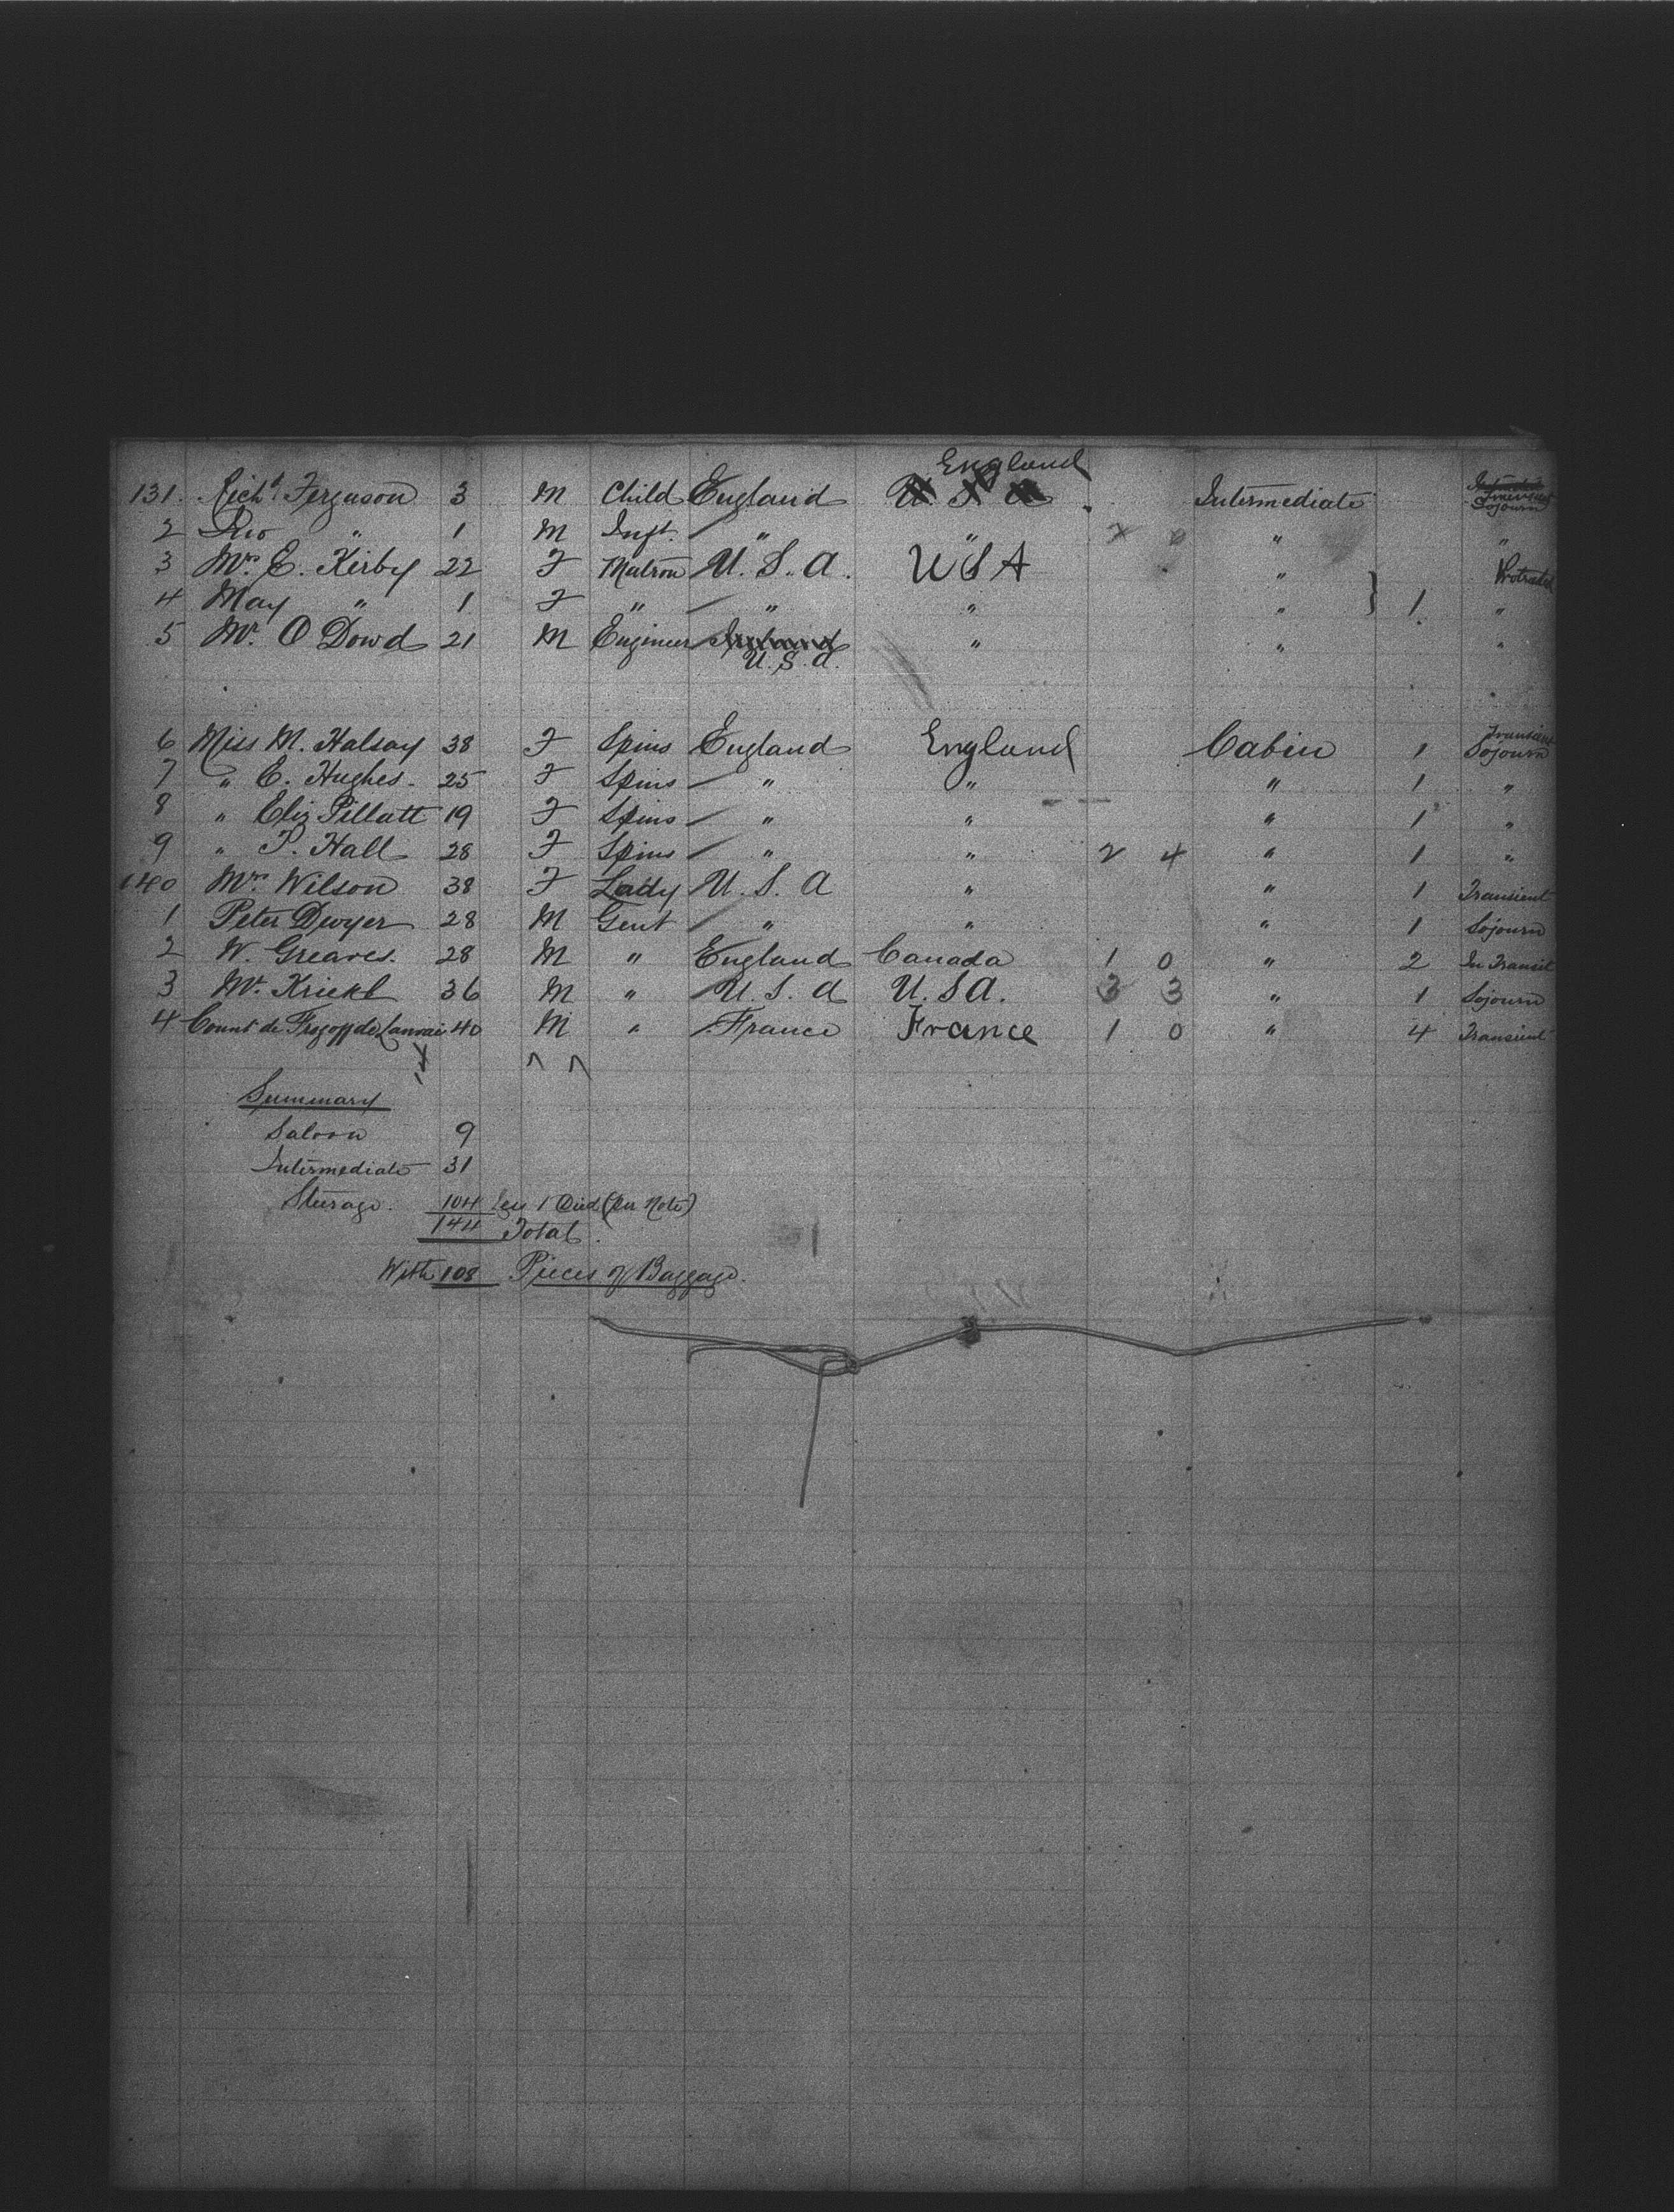 England
131. Richd. Ferguson 3 M Child England U S A Intermediate Sojourn
2 " 1 M Inft. " " "
3 Mrs. E. Kirby 22 F Matron U. S. A. U S A " Protracted
4 May " 1 F " " " " } 1 "
5 Mr. O Dowd 21 M Engineer Ireland " " "
U. S. A.
Transient
6 Miss M. Halsay 38 F Spins England England Cabin 1 Sojourn
7 " E. Hughes. 25 F Spins " " " 1 "
8 " Eliz Pillatt 19 F Spins " " " 1 "
9 " P. Hall 28 F Spins " " 2 4 " 1 "
140 Mrs. Wilson 38 F Lady U. S. A " " 1 Transient
1 Peter Dwyer 28 M Gent " " " 1 Sojourn
2 W. Greaves. 28 M " England Canada 1 0 " 2 In Transit
3 Mr. 36 M " U. S. A U. S A. 3 3 " 1 Sojourn
4 Count de 40 M " France France 1 0 " 4 Transient
Summary
Saloon 9
Intermediate 31
Steerage. 104 Less 1 Died (per Note)
144 Total.
With 108 Pieces of Baggage.